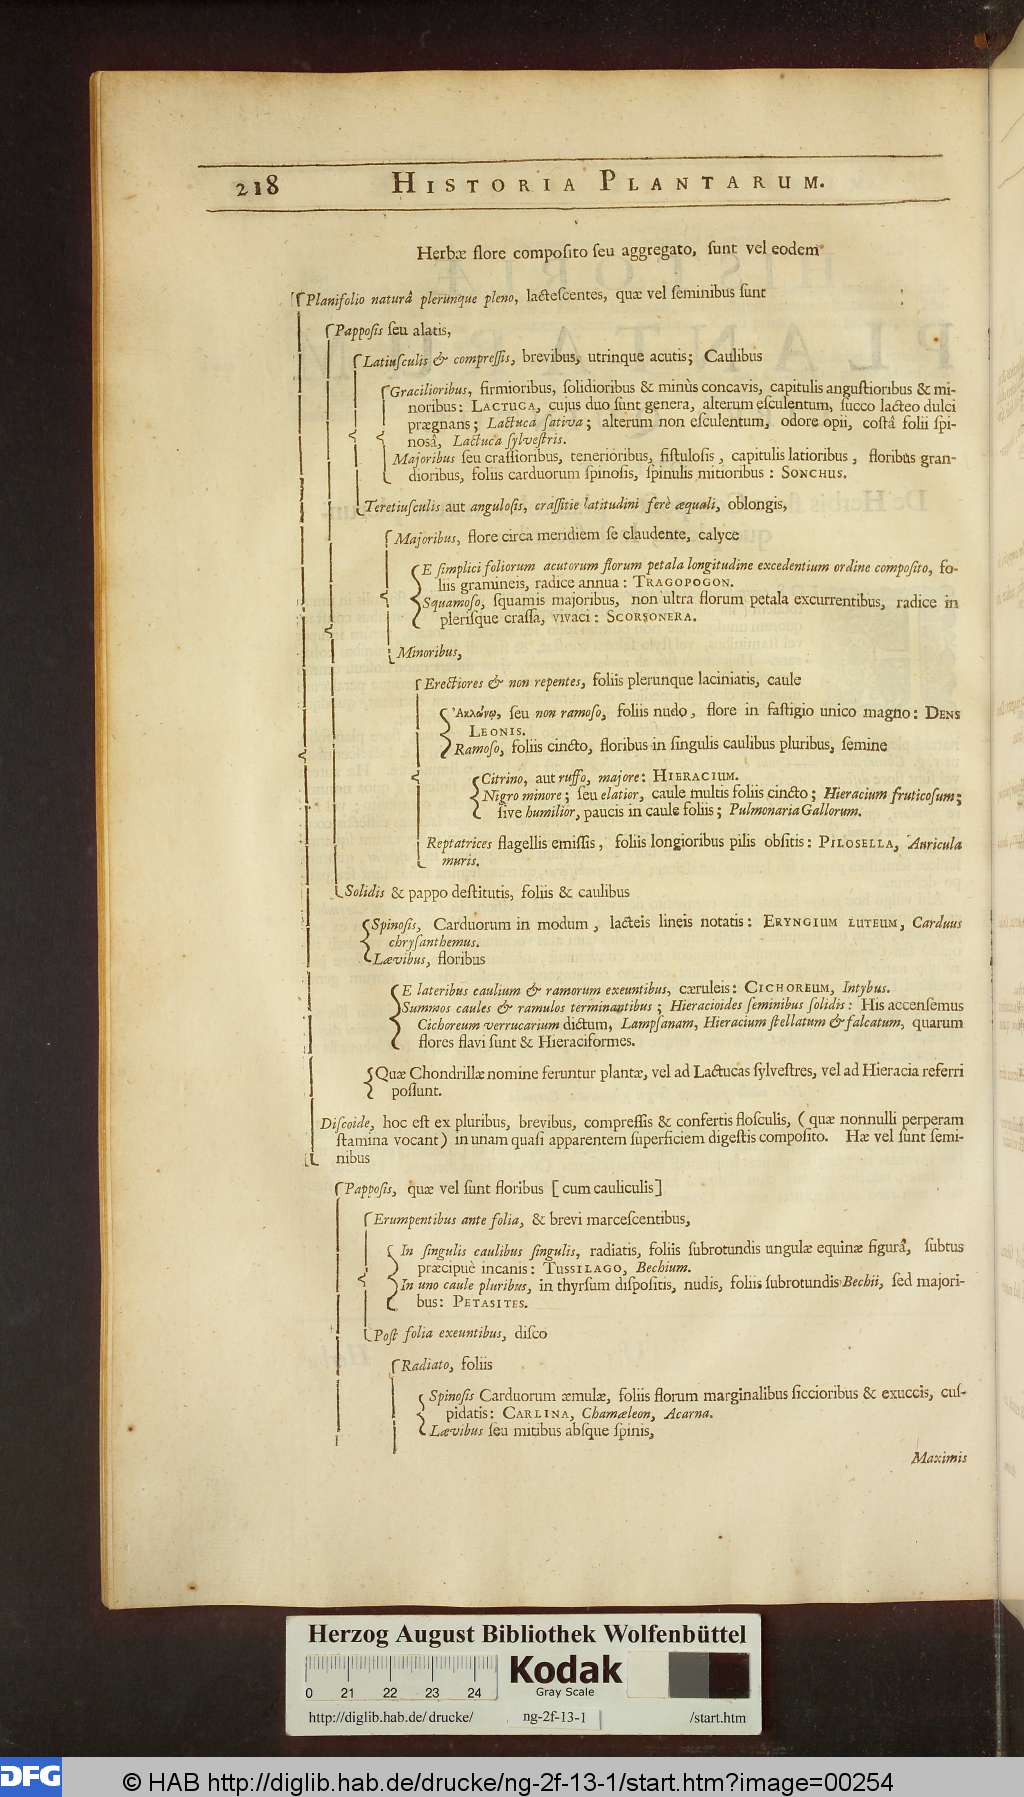 218 HISTORIA PLANTARUM.
Herbæ flore compoſito ſeu aggregato, ſunt vel eodem
Planifolio naturâ plerunque pleno, lacteſcentes, quæ vel ſeminibus ſunt
Pappoſis ſeu alatis,
Latiuſculis & compreſſis, brevibus, utrinque acutis; Caulibus
Gracilioribus, firmioribus, ſolidioribus & minùs concavis, capitulis anguſtioribus & mi-
noribus: LACTUCA, cujus duo ſunt genera, alterum eſculentum, ſucco lacteo dulci
prægnans; Lactuca ſativa; alterum non eſculentum, odore opii, coſtâ folii ſpi-
nosâ, Lactuca ſylveſtris.
Majoribus ſeu craſſioribus, tenerioribus, fiſtuloſis, capitulis latioribus, floribus gran-
dioribus, foliis carduorum ſpinoſis, ſpinulis mitioribus: SONCHUS.
Teretiuſculis aut anguloſis, craſſitie latitudini ferè æquali, oblongis,
Majoribus, flore circa meridiem ſe claudente, calyce
E ſimplici foliorum acutorum florum petala longitudine excedentium ordine compoſito, fo-
liis gramineis, radice annua: TRAGOPOGON.
Squamoſo, ſquamis majoribus, non ultra florum petala excurrentibus, radice in
pleriſque craſſa, vivaci: SCORSONERA.
Minoribus,
Erectiores & non repentes, foliis plerunque laciniatis, caule
Ἀκλώνῳ, ſeu non ramoſo, foliis nudo, flore in faſtigio unico magno: DENS
LEONIS.
Ramoſo, foliis cincto, floribus in ſingulis caulibus pluribus, ſemine
Citrino, aut ruffo, majore: HIERACIUM.
Nigro minore; ſeu elatior, caule multis foliis cincto; Hieracium fruticoſum;
ſive humilior, paucis in caule foliis; Pulmonaria Gallorum.
Reptatrices flagellis emiſſis, foliis longioribus pilis obſitis: PILOSELLA, Auricula
muris.
Solidis & pappo deſtitutis, foliis & caulibus
Spinoſis, Carduorum in modum, lacteis lineis notatis: ERYNGIUM LUTEUM, Carduus
chryſanthemus.
Lævibus, floribus
E lateribus caulium & ramorum exeuntibus, cæruleis: CICHOREUM, Intybus.
Summos caules & ramulos terminantibus; Hieracioides ſeminibus ſolidis: His accenſemus
Cichoreum verrucarium dictum, Lampſanam, Hieracium ſtellatum & falcatum, quarum
flores flavi ſunt & Hieraciformes.
Quæ Chondrillæ nomine feruntur plantæ, vel ad Lactucas ſylveſtres, vel ad Hieracia referri
poſſunt.
Diſcoide, hoc eſt ex pluribus, brevibus, compreſſis & confertis floſculis, (quæ nonnulli perperam
ſtamina vocant) in unam quaſi apparentem ſuperficiem digeſtis compoſito. Hæ vel ſunt ſemi-
nibus
Pappoſis, quæ vel ſunt floribus [cum cauliculis]
Erumpentibus ante folia, & brevi marceſcentibus,
In ſingulis caulibus ſingulis, radiatis, foliis ſubrotundis ungulæ equinæ figurâ, ſubtus
præcipuè incanis: TUSSILAGO, Bechium.
In uno caule pluribus, in thyrſum diſpoſitis, nudis, foliis ſubrotundis Bechii, ſed majori-
bus: PETASITES.
Poſt folia exeuntibus, diſco
Radiato, foliis
Spinoſis Carduorum æmulæ, foliis florum marginalibus ſiccioribus & exuccis, cuſ-
pidatis: CARLINA, Chamæleon, Acarna.
Lævibus ſeu mitibus abſque ſpinis,
Maximis
Herzog August Bibliothek Wolfenbüttel
Kodak
Gray Scale
0 21 22 23 24
http://diglib.hab.de/drucke/ ng-2f-13-1 /start.htm
DFG © HAB http://diglib.hab.de/drucke/ng-2f-13-1/start.htm?image=00254